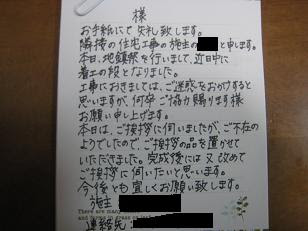 様
お手紙にて失礼致します。
隣接の住宅工事の施主の と申します。
本日、地鎮祭を行いまして、近日中に
着工の段となりました。
工事におきましては、ご迷惑をおかけすると
思いますが、何卒ご協力賜ります様
お願い申し上げます。
本日は、ご挨拶に伺いましたが、ご不在の
ようでしたので、ご挨拶の品を置かせて
いただきました。完成後には又改めて
ご挨拶に伺いたいと思います。
今後とも宜しくお願い致します。
施主
There are many
連絡先: